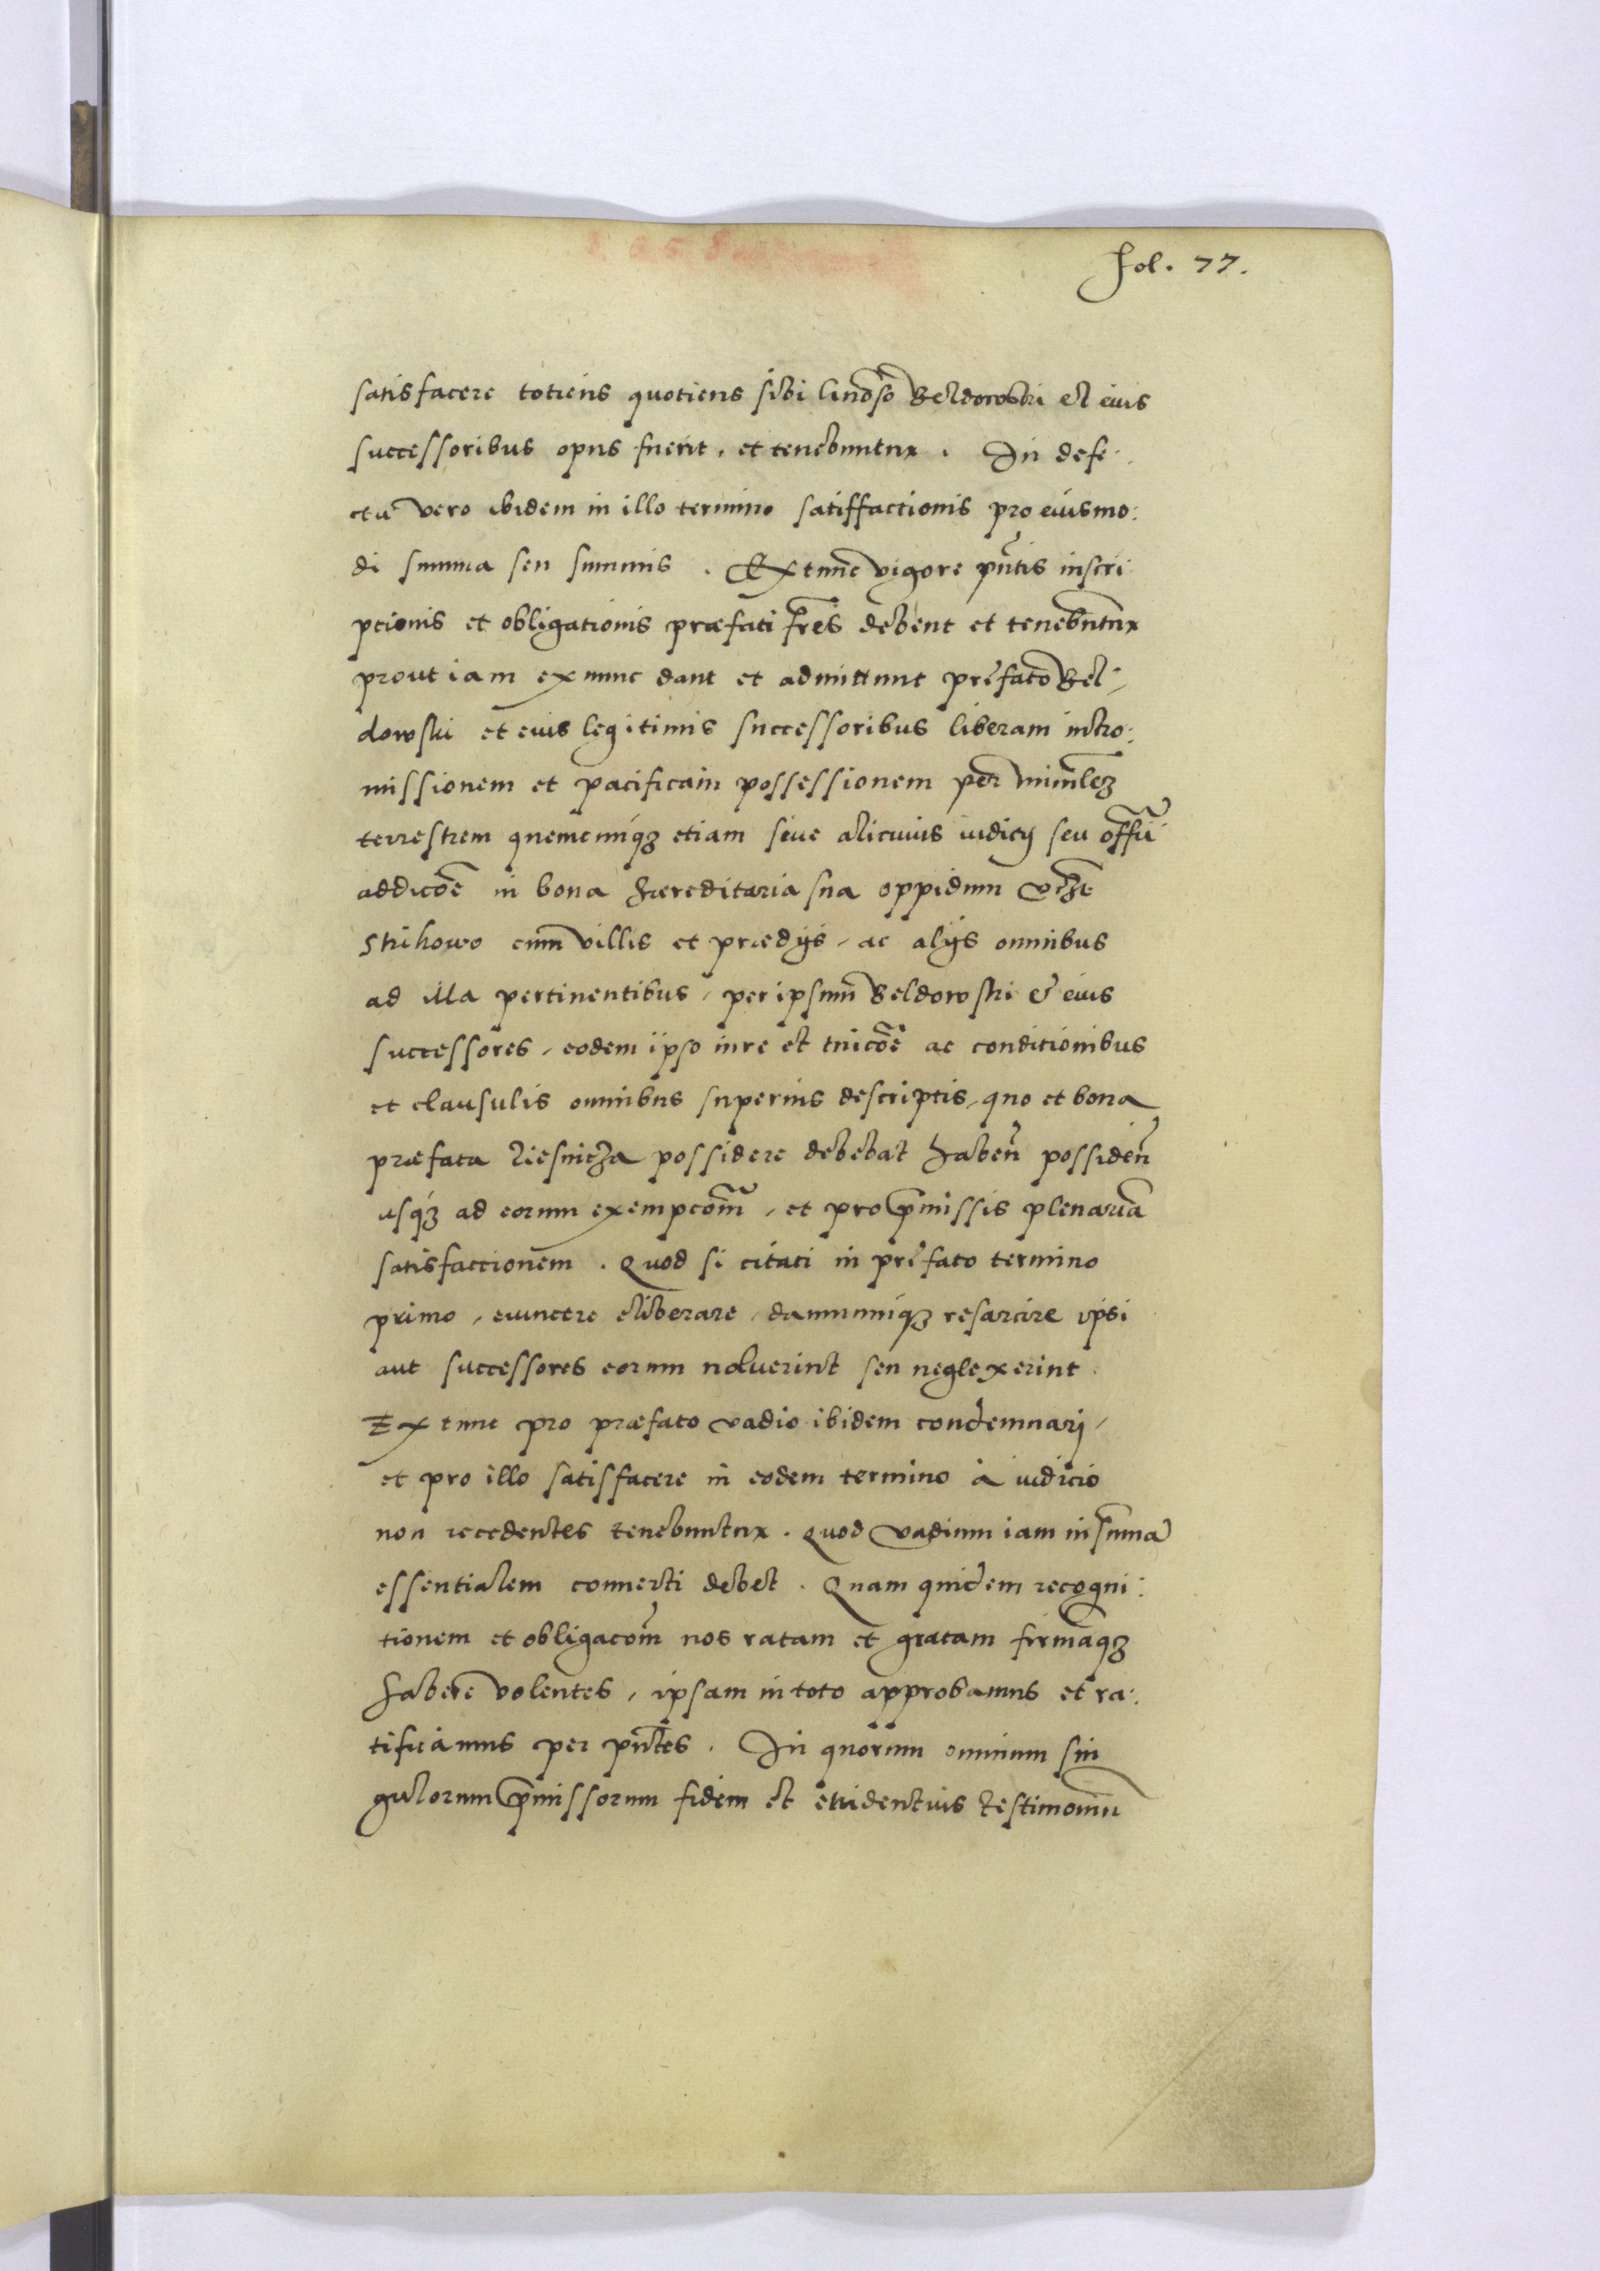 fol. 77.
satisfacere totiens quotiens sibi Beldowski et eius
successoribus opus fuerit, et tenebuntur. In defe:
ctu vero ibidem in illo termino satiffactionis pro eiusmo:
di summa seu summis. Ex tunc vigore pñtis inscri
ptionis et obligationis præfati fr̃es debent et tenebuntur
prout iam ex nunc dant et admittunt prefato Bel:
dowski et eius legitimis successoribus liberam intro:
missionem et pacificam possessionem per minrlẽq
terrestrem quemcunqz etiam sive alicuius iudicij seu offici
addicõe in bona hæreditaria sua oppidum
Strikowo cum villis et prædijs, ac alijs omnibus
ad illa pertinentibus, per ipsum Beldowski & eius
successores, eodem ipso iure et tuicõe ac conditionibus
et clausulis omnibus superius descriptis, quo et bona
præfata Liesnicza possidere debebat habeñ possideñ
usqz ad eorum exempcom̃, et pro p̃missis plenariã
satisfactionem. Quod si citati in prefato termino
primo, evincere eliberare, damnumqz resarcire ipsi
aut successores eorum noluerint seu neglexerint.
Ex tunc pro præfato vadio ibidem condemnari,
et pro illo satisfacere in eodem termino à iudicio
non recedentes tenebuntur. Quod vadium iam in summa
essentialem converti debet. Quam quidem recogni:
tionem et obligacom̃ nos ratam et gratam firmãqz
habere volentes, ipsam in toto approbamus et ra:
tificamus per pñtes. In quorum omnium sin
gulorum p̃missorum fidem et evidentius testimoniũ